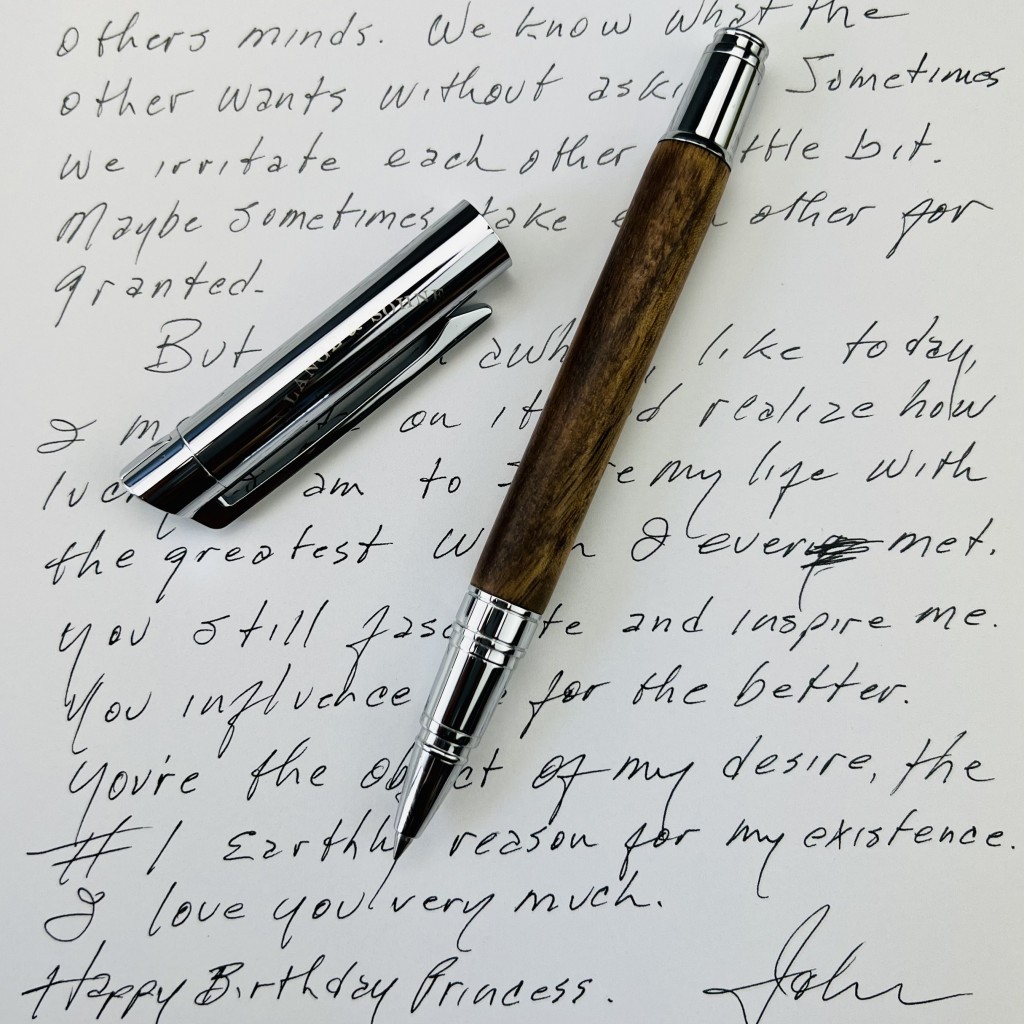 others minds. We know what the
other wants without aski Sometimes
we irritate each other ttle bit.
Maybe sometimes take e other for
granted.
But awh, like today,
I m on it d realize how
luc am to re my life with
the greatest w n I ever met.
you still fasc te and inspire me.
You influence for the better.
You're the ob ct of my desire, the
#1 Earthly reason for my existence.
I love you very much.
Happy Birthday Princess.
John
LANGE & SÖHNE